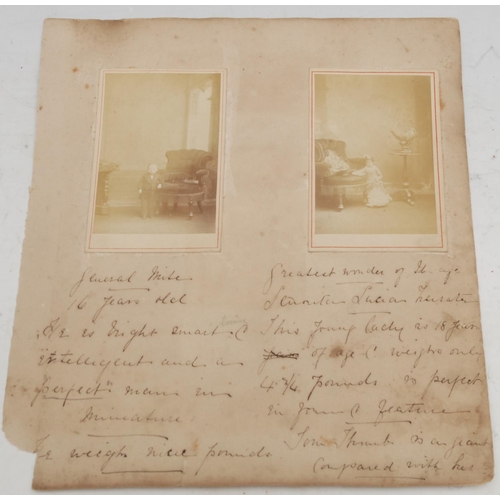 General Mite
6 years old
He is bright smart &
intelligent and a
"perfect" man in
Miniature
He weighs nine pounds
Greatest wonder of the age
Lucia Zarate
This young lady is 18 years
of age & weighs only
4 3/4 pounds is perfect
in form & feature
Tom Thumb is a giant
compared with her